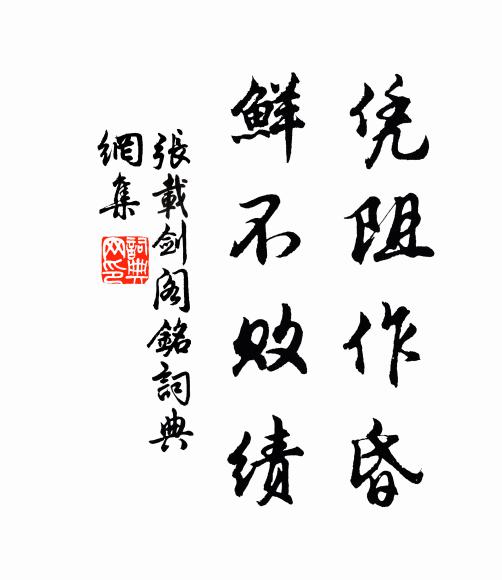 凭阻作昏
鲜不败绩
張載剑阁銘詞典
網集
詞典
网印